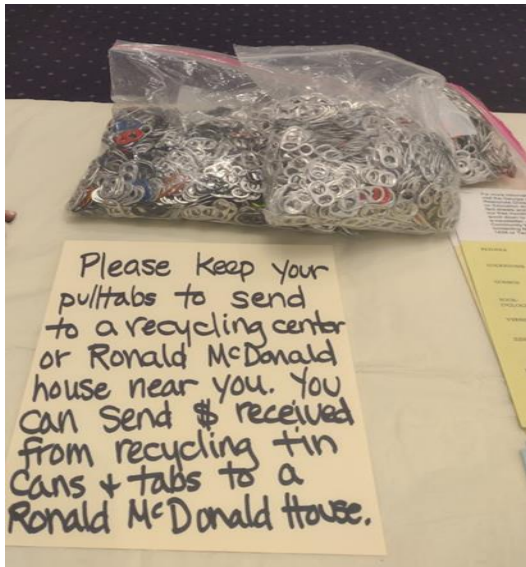 Please keep your
pulltabs to send
to a recycling center
or Ronald McDonald
house near you. You
can send $ received
from recycling tin
cans + tabs to a
Ronald McDonald House.